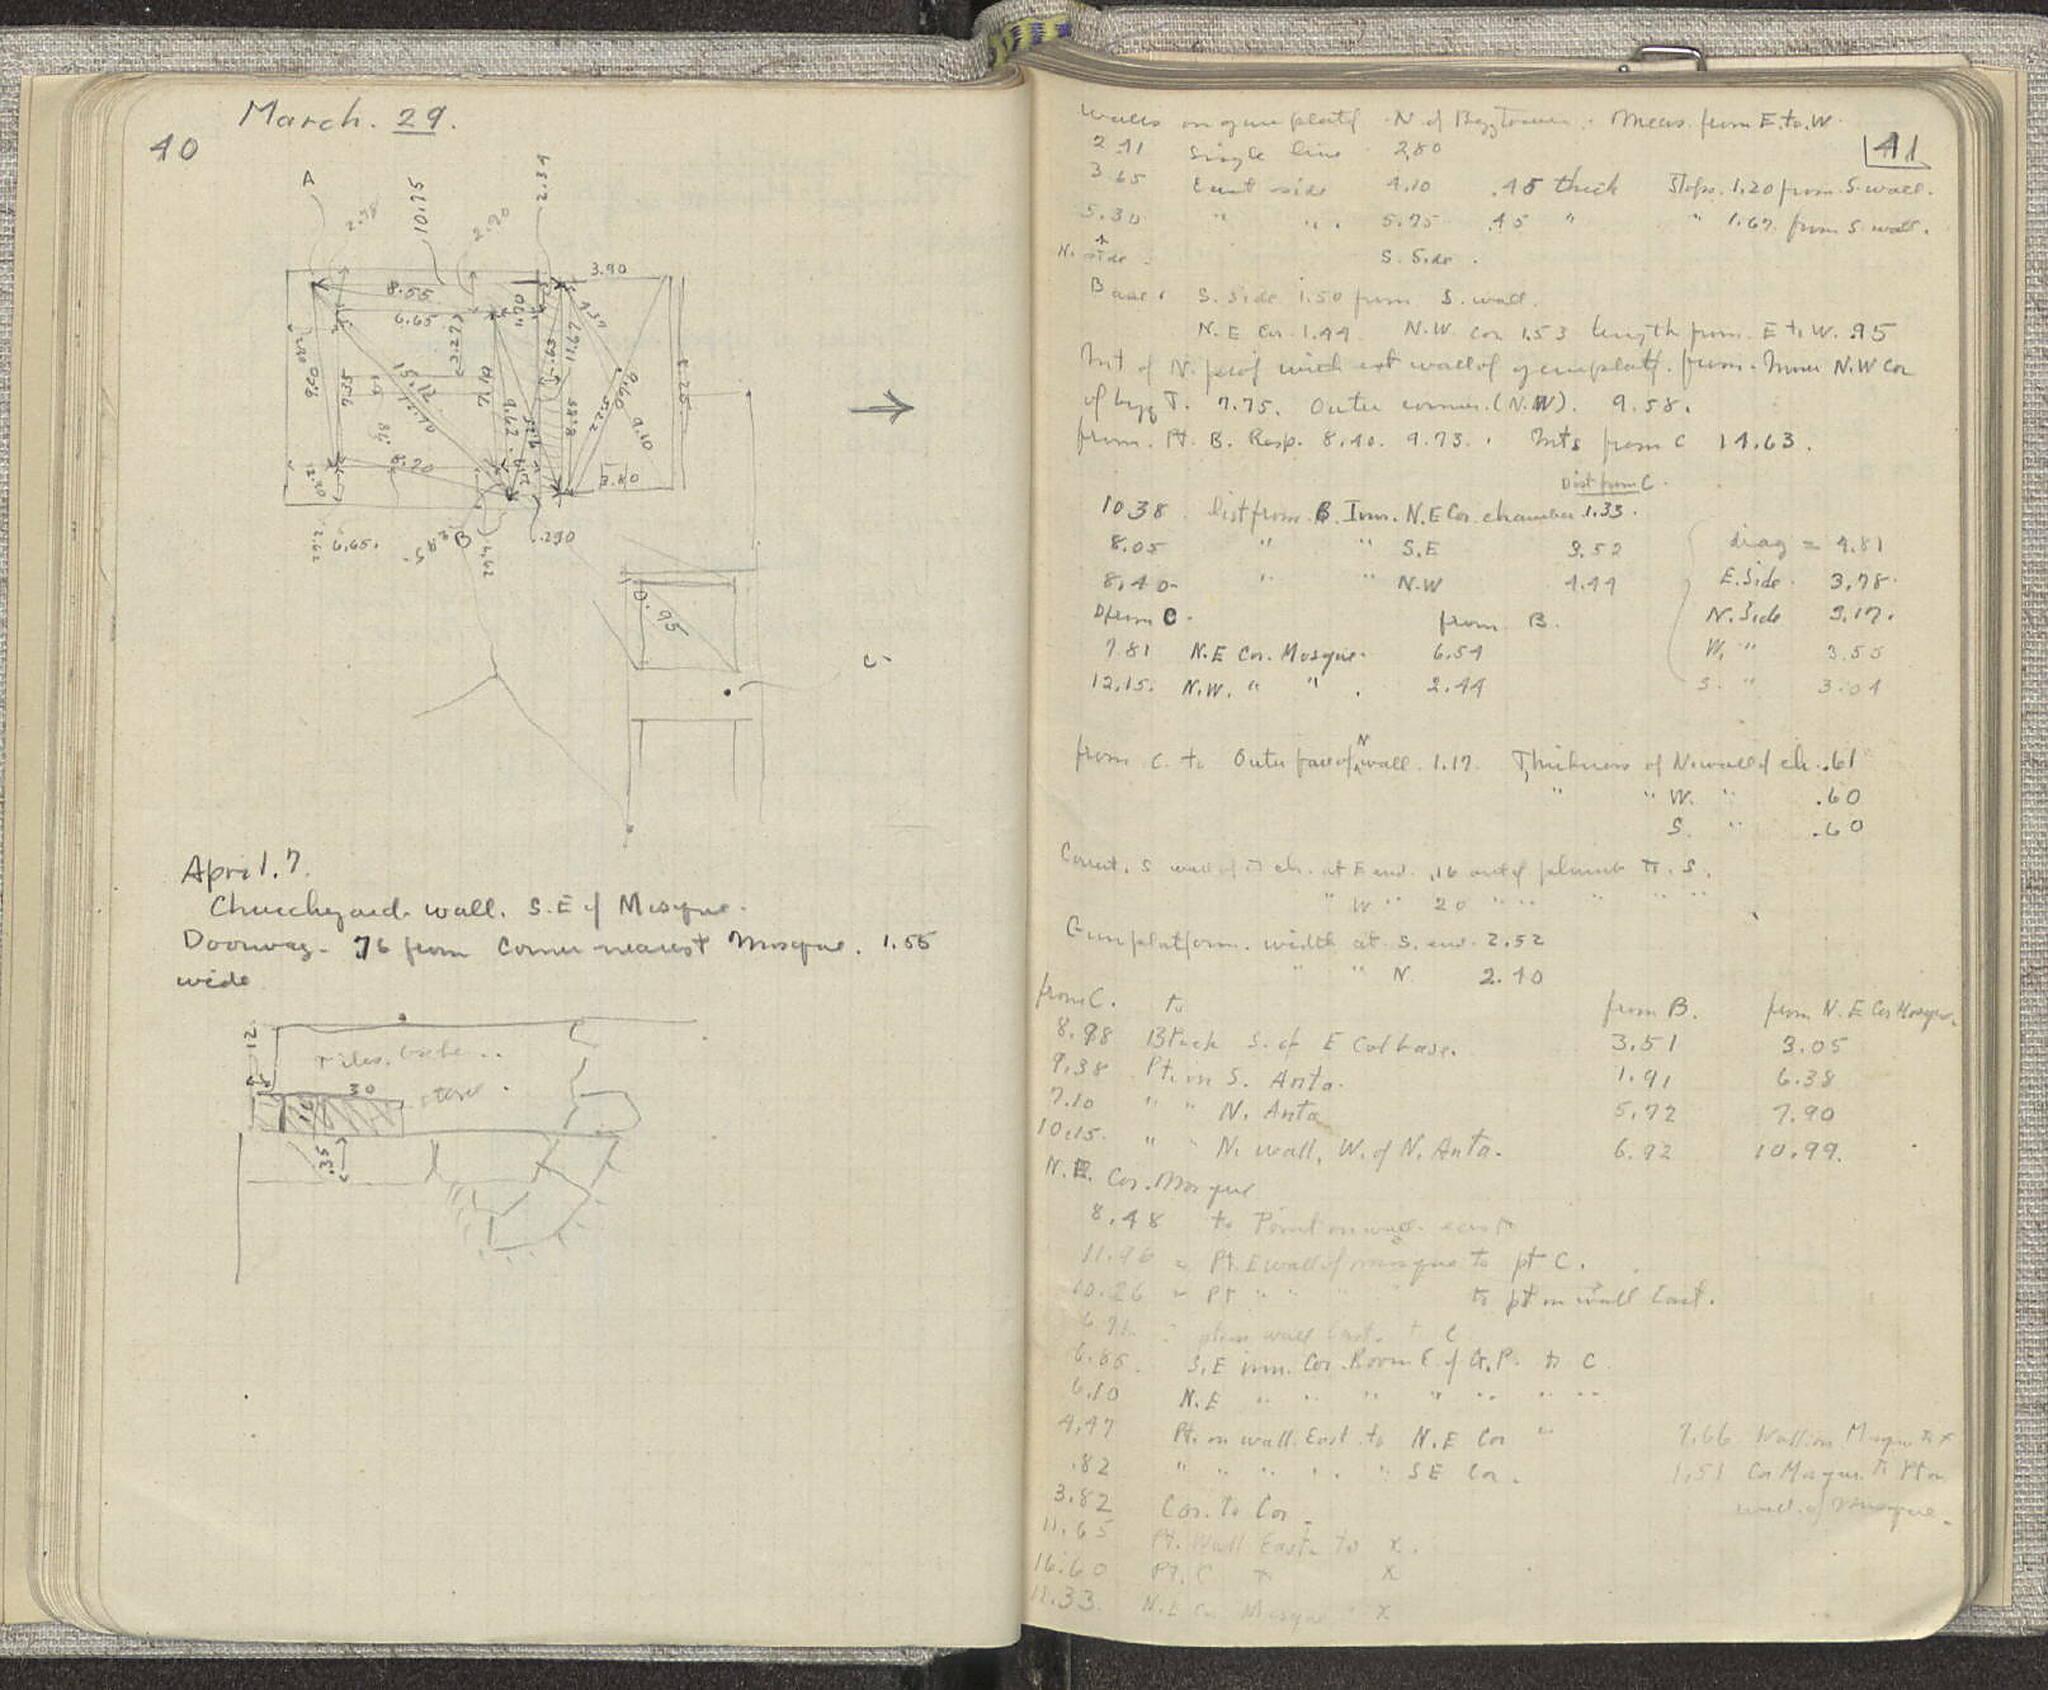 March. 29.
40
A
2.78
10.75
2.70
2.34
3.90
8.55
6.65
1.70
3.27
7.10
15.12
8.70
8.25
9.10
3.80
6.65.
2.62
B
4.62
.290
0.95
C
April. 7.
Churchyard wall. S.E of Mosque.
Doorway - 76 from Corner nearest Mosque. 1.55
wide
12
Tiles.
30
stone
.35
41
Walls on gun platf N of Byz Tower. Meas. from E. to. W.
2.41 Single line 2.80
3.65 East side 4.10 .45 thick Stops. 1.20 from S. wall.
5.30 " " 5.75 .45 " " 1.67 from S. wall.
N. side. S. Side.
Base. S. side 1.50 from S. wall.
N.E Cor. 1.44 N.W. Cor 1.53 length from E to W. .95
Int of N. with wall of gun platf. from Inner N.W Cor
of byz T. 7.75. Outer corner. (N.W). 9.58.
from. Pt. B. Resp. 8.40. 9.73. Ints from C 14.63.
Dist from C.
10 38 Dist from B. Inn. N.E Cor. chamber 1.33.
8.05 " " S.E 3.52 diag = 4.81
8.40 " " N.W 4.44 E. Side. 3.78.
D from C. from B. N. Side 3.17.
7.81 N.E Cor. Mosque. 6.54 W. " 3.55
12.15. N.W. " " . 2.44 S. " 3.04
from C. to Outer face of N wall. 1.17. Thickness of N. wall of ch. .61
" " W. " .60
S. " .60
S wall of ch. at E end. .16 out of plumb to. S.
" W " 20 " " " " "
Gun platform. width at S. end. 2.52
" " N 2.40
from C. to from B. from N.E Cor Mosque.
8.98 Block S. of E Col base. 3.51 3.05
9.38 Pt. on S. Anta. 1.91 6.38
7.10 " " N. Anta 5.72 7.90
10.15. " " N. wall, W. of N. Anta. 6.92 10.99.
N.E. Cor. Mosque
8.48 to Point on wall east
11.96 " Pt. E wall of mosque to pt C.
10.26 " Pt " " " " to pt on wall East.
pt on wall East. to C
6.86. S.E inn. Cor. Room E of G.P. to C.
6.10 N.E " " " " " " "
4.47 Pt. on wall East to N.E Cor " 7.66 Mosque to x
.82 " " " " " S E Cor. 1.51 Cor Mosque to Pt on
3.82 Cor. to Cor. wall of Mosque.
11.65 Pt. Wall East to x.
16.60 Pt. C to x
11.33. N.E Cor Mosque " x